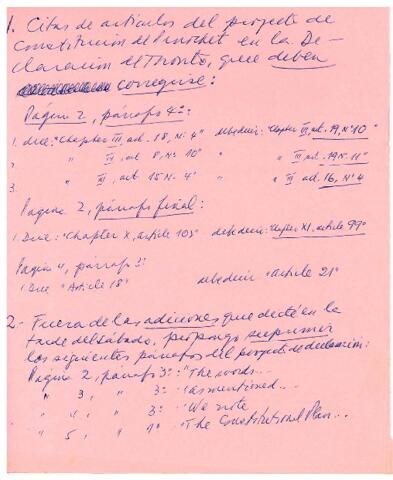 1. Citas de artículos del proyecto de
Constitución de Pinochet en la De-
claración de Toronto, que deben
corregirse:
Página 2, párrafo 4º:
1. dice: "Chapter III, art. 18, Nº 4" debe decir: Chapter III, art. 19, Nº 10"
2. " III, art 8, Nº 10" " III, art. 19 Nº 11"
3. " III, art 15 Nº 4" " III art. 16, Nº 4
Página 2, párrafo final:
1. Dice: "Chapter X, article 105" debe decir: Chapter XI, article 99"
Página 4, párrafo 3º:
1. Dice "Article 18" debe decir "article 21"
2.- Fuera de las adiciones que dicté en la
tarde del sábado, propongo suprimir
los siguientes párrafos del proyecto de declaración:
Página 2, párrafo 3º: "The words...
" 3, " 3º: "As mentioned...
" 4, " 3º: "We note
" 5, " 1º "The Constitutional Plan...